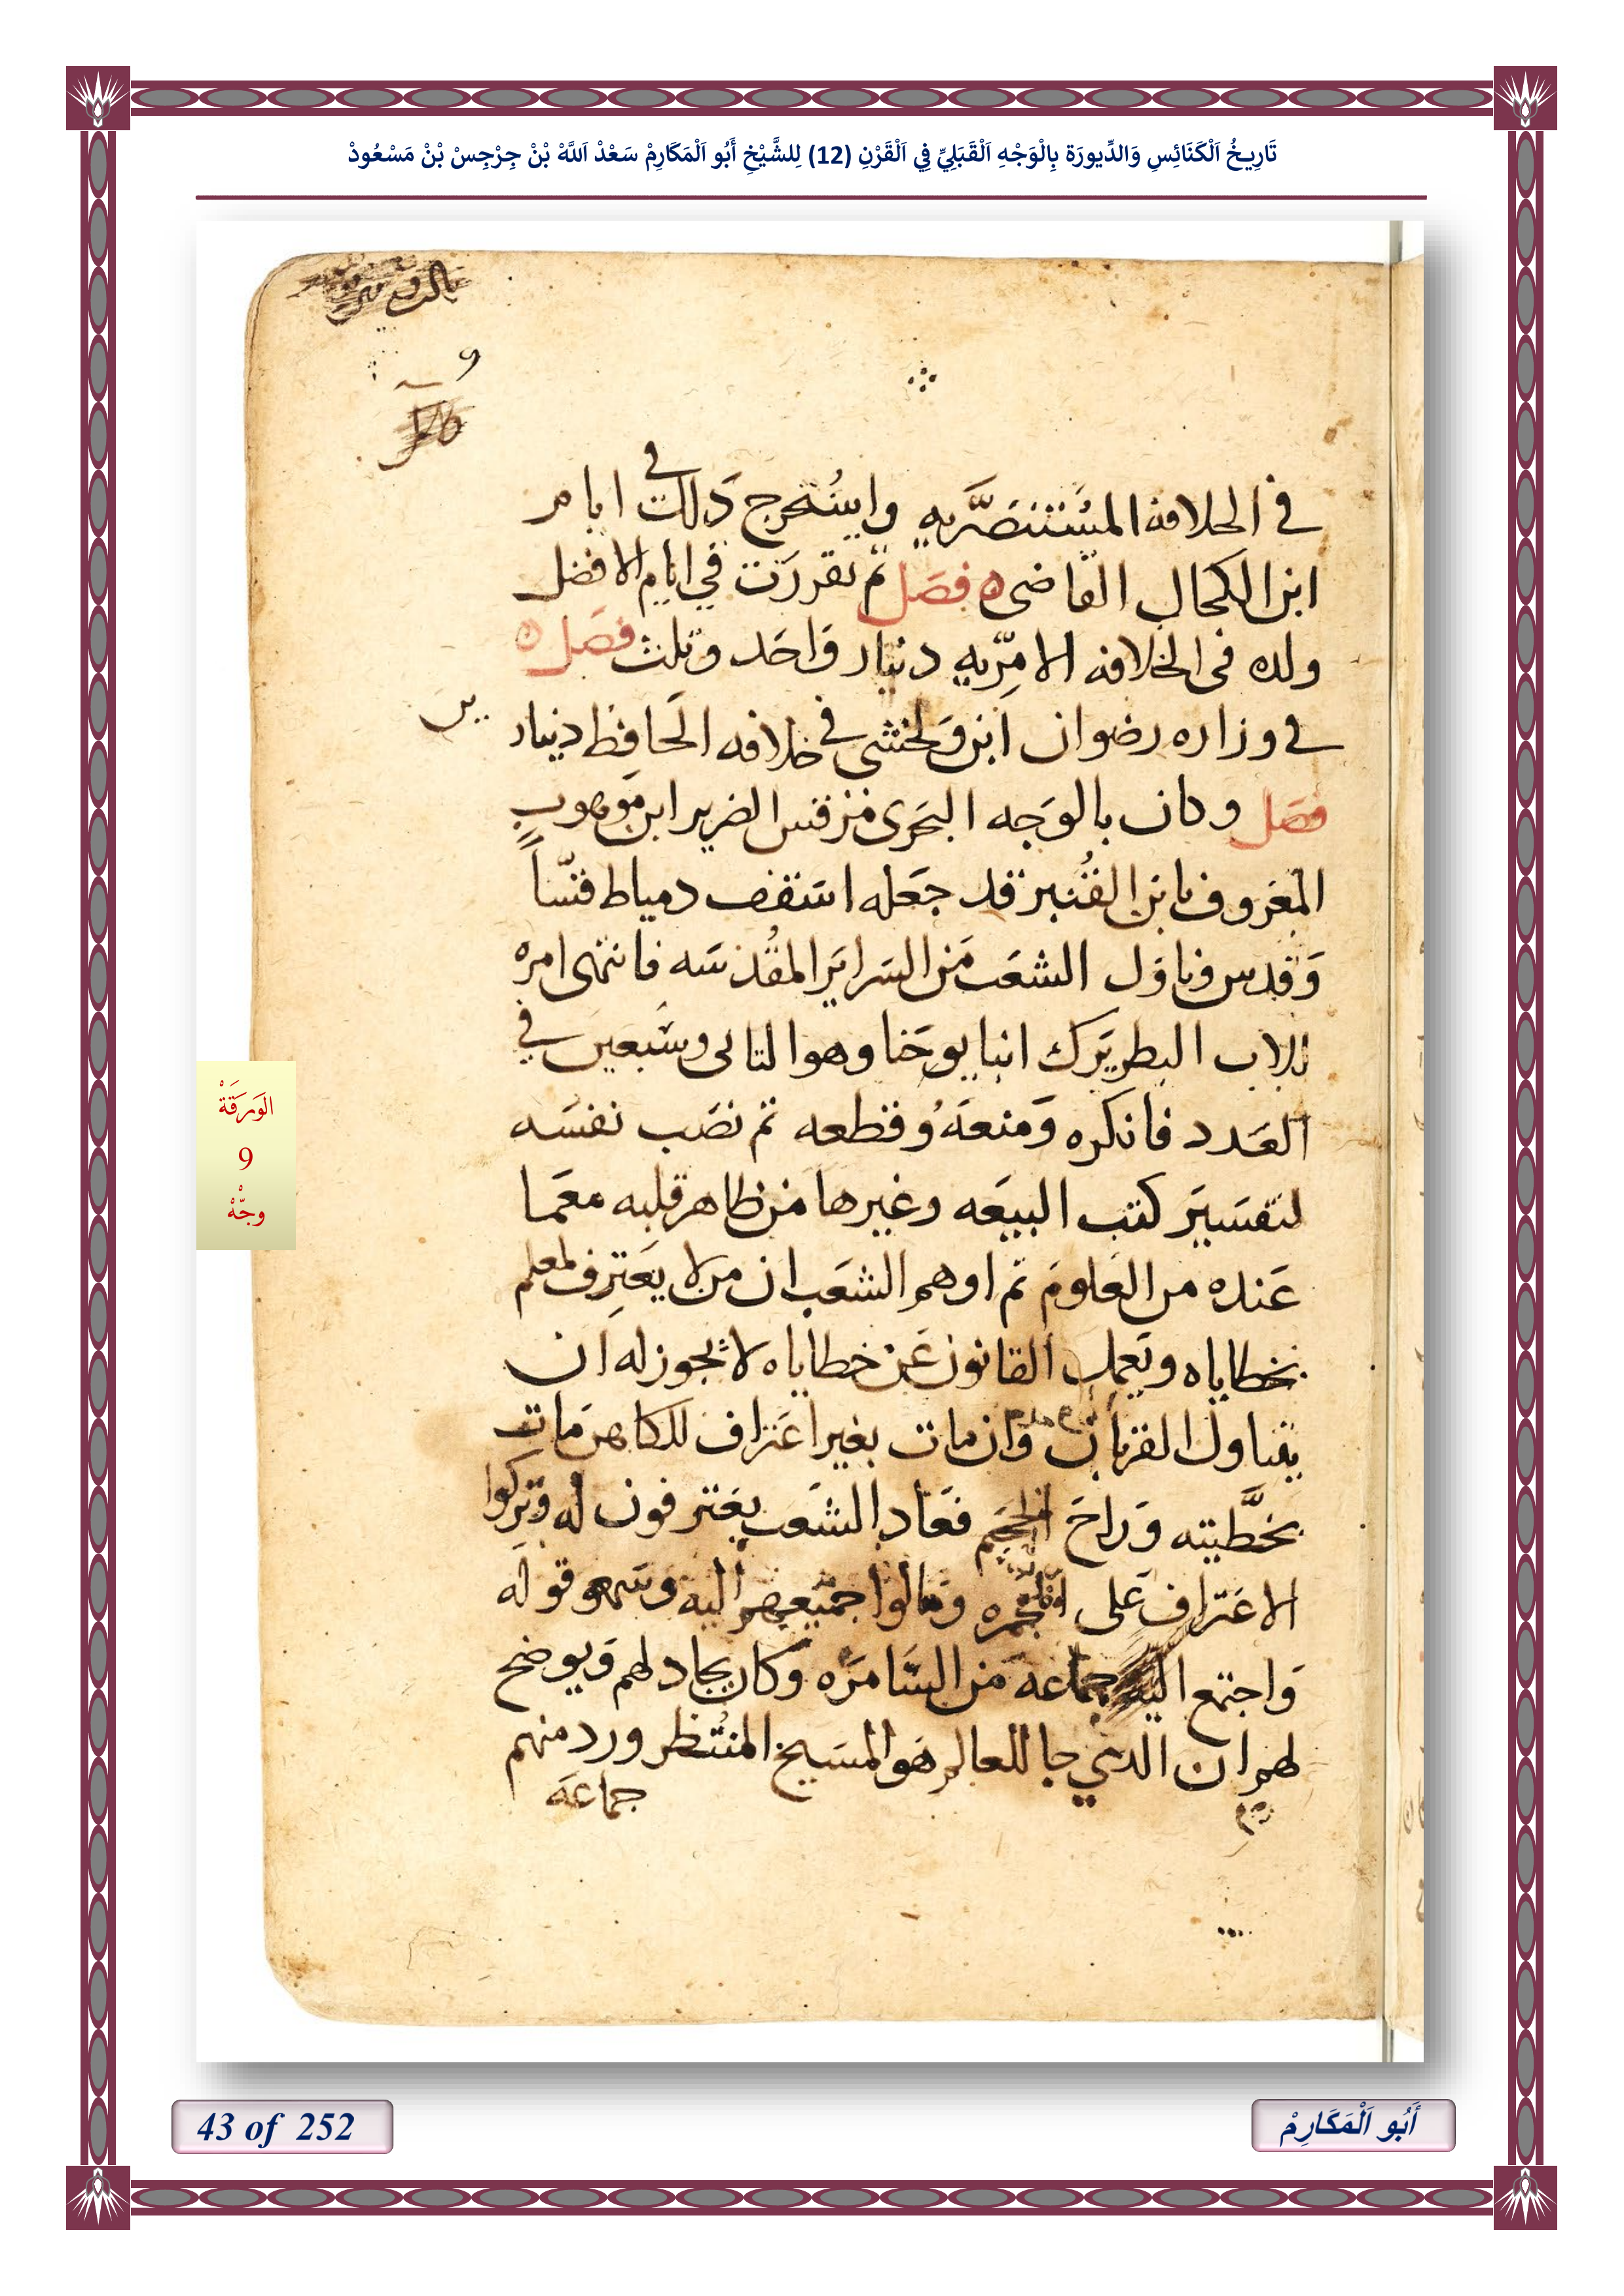 تَارِيخُ اَلْكَنَائِسِ وَالدِّيورَة بِالْوَجْهِ اَلْقَبَلِيِّ فِي اَلْقَرْنِ (12) لِلشَّيْخِ أَبُو اَلْمَكَارِمْ سَعْدْ اَللَّهْ بْنْ جِرْجِسْ بْنْ مَسْعُودْ
9
في الخلافه المستنصريه واستخرج ذلك في ايام
ابن الكحال القاضى فصل ثم تقررت في ايام الافضل
ولده فى الخلافه الامريه دينار واحد وثلث فصل
في وزاره رضوان ابن ولخشى في خلافه الحافظ دينار
ين
فصل وكان بالوجه البحرى مرقس الضرير ابن موهوب
المعروف بابن القنبر قد جعله اسقف دمياط قساً
وقدس وناول الشعب من السراير المقدسه فانتهى امره
للاب البطريرك انبا يوحنا وهو التانى وسبعين في
العدد فانكره ومنعه وقطعه ثم نصب نفسه
لتفسير كتب البيعه وغيرها من ظاهر قلبه معما
عنده من العلوم ثم اوهم الشعب ان من لا يعترف لمعلم
بخطاياه ويعمل القانون عن خطاياه لا يجوز له ان
يتناول القربان وان مات بغير اعتراف للكاهن مات
بخطيته وراح الجحيم فعاد الشعب يعترفون له وتركوا
الاعتراف على المجمره ومالوا جميعهم اليه وسمعو قوله
واجتمع اليه جماعه من السامره وكان يجادلهم ويوضح
لهم ان الذي جا للعالم هو المسيح المنتظر ورد منهم
جماعه
الوَرَقَةْ
9
وجّهْ
43 of 252
أَبُو اَلْمَكَارِمْ